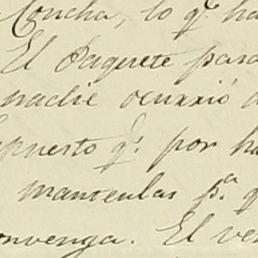 Concha, lo q.e ha
El Paquete pasa
nadie ocurrió a
puesto q.e por ha
mantenlas p.a q
onvenga. El ve